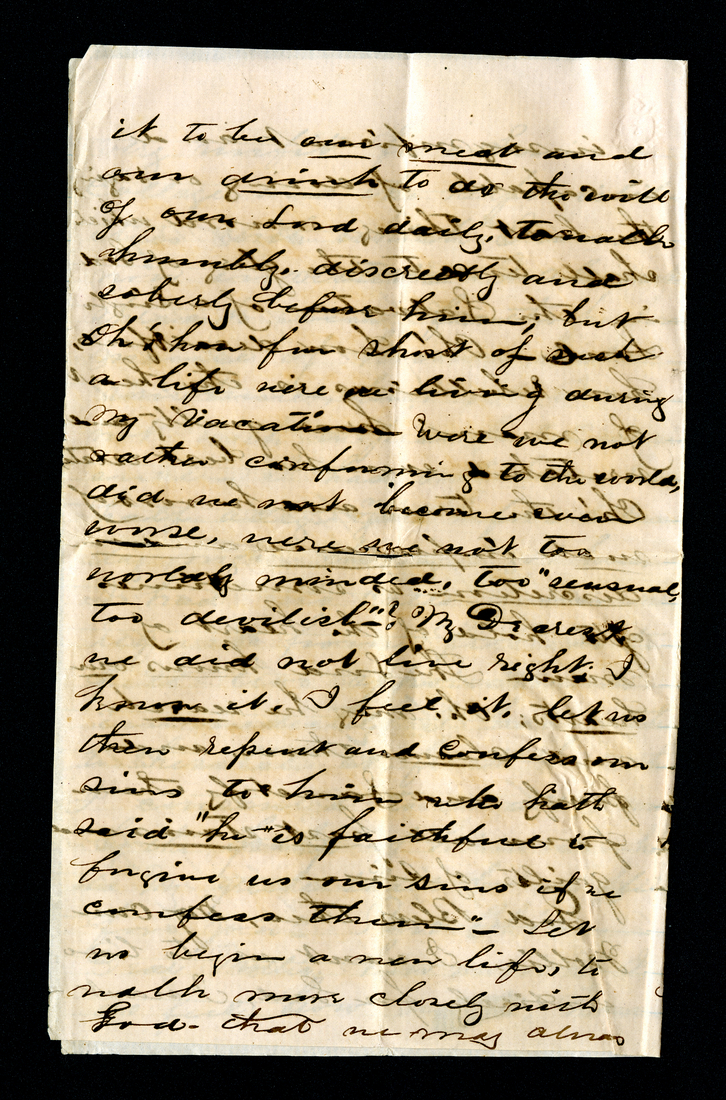 it to be our meat and
our drink to do the will
of our Lord daily, to walk
humbly, discreetly and
soberly before him, but
Oh! how far short of such
a life were we living during
my vacation were we not
rather conforming to the world,
did we not become even
worse, were we not too
worldly minded, too "sensual,
too devilish"? My Dearest
we did not live right. I
know it, I feel it, let us
then repent and confess our
sins to him who hath
said "he "is faithful to
forgive us our sins if we
confess them" - Let
us begin a new life, to
walk more closely with
God - that we may always